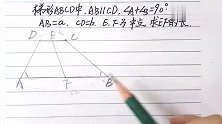 梯形ABCD中, AB∥CD, ∠A+∠B=90°
AB=a, CD=b, E、F为中点, 求EF的长
D E C
A F B